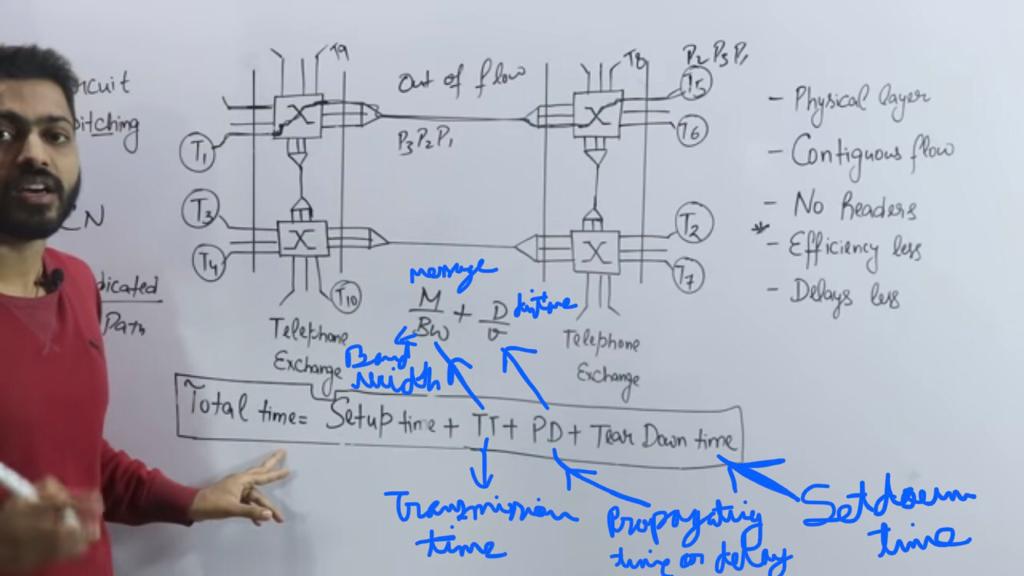 ircuit
itching
CN
dicated
Path
T9
Out of flow
T8
P2 P3 P1
T1
P3 P2 P1
T5
T6
T3
T4
T10
T2
T7
Telephone
Exchange
Telephone
Exchange
message
M
BW
+
D
v
distance
Band
width
- Physical layer
- Contiguous flow
- No Headers
* - Efficiency less
- Delays less
Total time = Setup time + TT + PD + Tear Down time
Transmission
time
Propagating
time or delay
Setdown
time